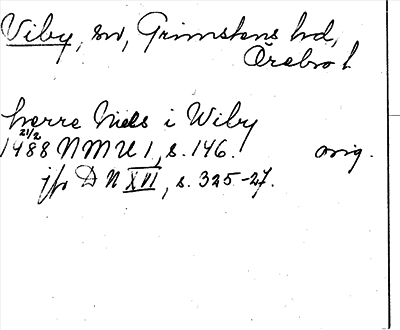 Viby, sn, Grimstens hd,
Örebro l.
herre Niels i Wiby
21/2
1488 NMU 1, s. 146. orig.
jfr DN XVI, s. 325-27.